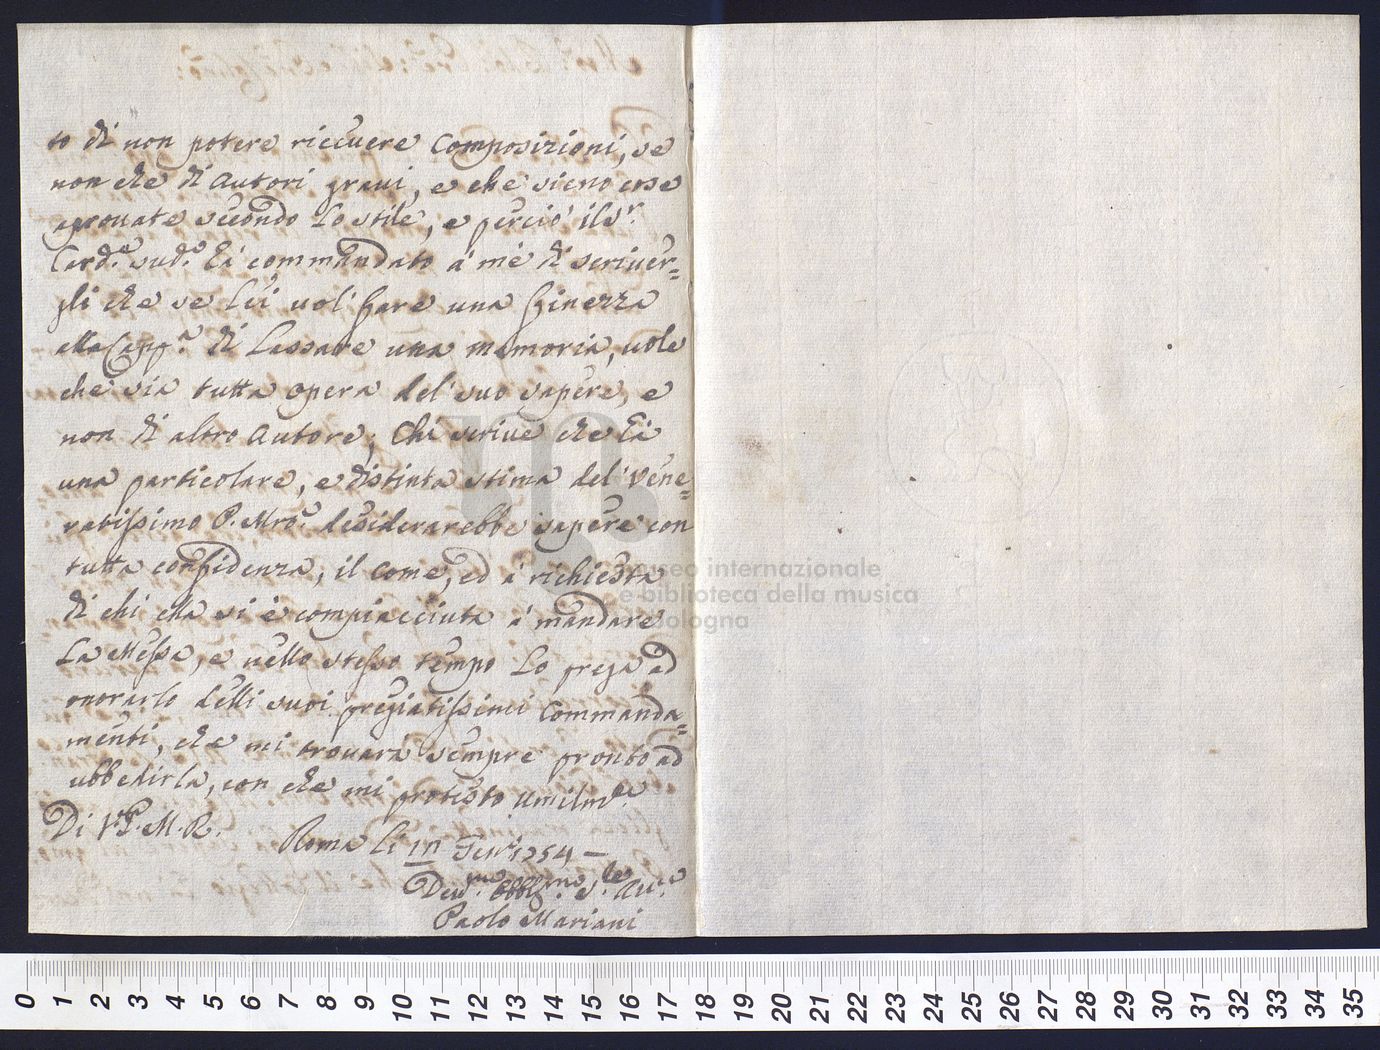 to di non potere riceuere Composizioni, se
non che di Autori graui, e che sieno esse
aprouate secondo Lo stile, e perciò il Sr.
Card.e sud.o hà commandato à me di scriuer=
gli che se Lei uol' fare una finezza
alla Capp.a di Lassare una memoria, uole
che sia tutta opera del' suo sapere, e
non di altro Autore; Chi scriue che hà
una particolare, e distinta stima del' Vene=
ratissimo P. Mro. desiderarebbe sapere con
tutta confidenza, il come, ed à richiesta
di chi ella si è compiacciuta à mandare
La Messa, e nello stesso tempo Lo prega ad
onorarlo delli suoi pregiatissimi Commanda=
menti, che mi trouarà sempre pronto ad
ubbedirla, con che mi protesto umilm.e
Di V. P. M. R.
Roma Li Gen.o 1754
Deu.mo Obblig.mo Se.
Paolo Mariani
museo internazionale
e biblioteca della musica
di bologna
0 1 2 3 4 5 6 7 8 9 10 11 12 13 14 15 16 17 18 19 20 21 22 23 24 25 26 27 28 29 30 31 32 33 34 35